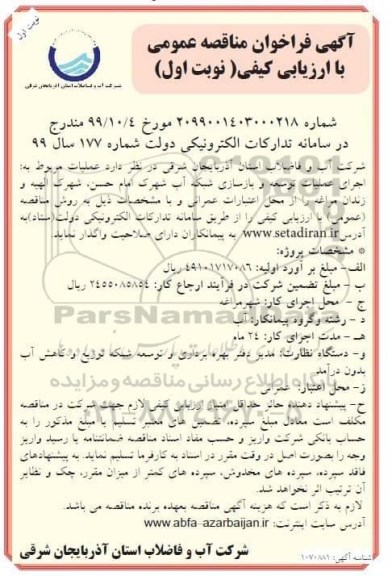 نوبت اول
آگهی فراخوان مناقصه عمومی
با ارزیابی کیفی( نوبت اول)
شرکت آب و فاضلاب استان آذربایجان شرقی
شماره ۲۰۹۹۰۰۱۴۰۳۰۰۰۲۱۸ مورخ ۹۹/۱۰/۴ مندرج
در سامانه تدارکات الکترونیکی دولت شماره ۱۷۷ سال ۹۹
شرکت آب و فاضلاب استان آذربایجان شرقی در نظر دارد عملیات مربوط به:
اجرای عملیات توسعه و بازسازی شبکه آب شهرک امام حسن، شهرک الهیه و
زندان مراغه را از محل اعتبارات عمرانی و با مشخصات ذیل به روش مناقصه
(عمومی) با ارزیابی کیفی را از طریق سامانه تدارکات الکترونیکی دولت(ستاد)به
آدرس www.setadiran.ir به پیمانکاران دارای صلاحیت واگذار نماید.
* مشخصات پروژه:
الف- مبلغ بر آورد اولیه: ۴۹۱۰۱۷۱۷۰۸۶ ریال
ب - مبلغ تضمین شرکت در فرآیند ارجاع کار: ۲۴۵۵۰۸۵۸۵۴ ریال
ج - محل اجرای کار: شهرمراغه
د - رشته وگروه پیمانکار: آب
هـ - مدت اجرای کار: ۲۴ ماه
و- دستگاه نظارت: مدیر دفتر بهره برداری و توسعه شبکه توزیع و کاهش آب
بدون درآمد
ز- محل اعتبار: عمرانی
ح - پیشنهاد دهنده حائز حداقل امتیاز ارزیابی کیفی لازم جهت شرکت در مناقصه
مکلف است معادل مبلغ سپرده، تضمین های معتبر تسلیم یا مبلغ مذکور را به
حساب بانکی شرکت واریز و حسب مفاد اسناد مناقصه ضمانتنامه یا رسید واریز
وجه را بصورت اصل در وقت مقرر در اسناد به کارفرما تسلیم نماید. به پیشنهادهای
فاقد سپرده، سپرده های مخدوش، سپرده های کمتر از میزان مقرر، چک و نظایر
آن ترتیب اثر نخواهد شد.
لازم به ذکر است که هزینه آگهی مناقصه بعهده برنده مناقصه می باشد.
آدرس سایت اینترنت: www.abfa-azarbaijan.ir
شرکت آب و فاضلاب استان آذربایجان شرقی
شناسه آگهی: ۱۰۷۰۸۸۱
ParsNamadData
پایگاه اطلاع رسانی مناقصه و مزایده
۰۲۱-۸۸۳۴۹۶۷۰-۵